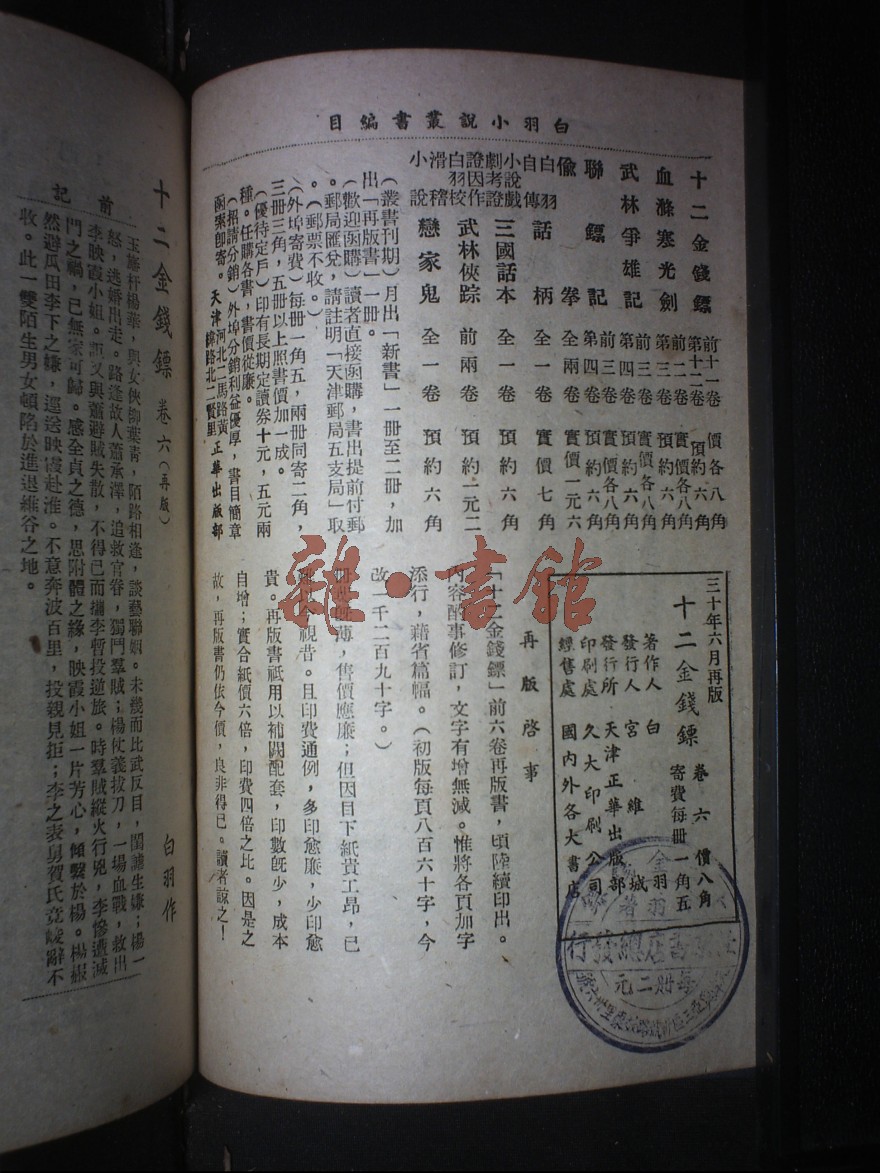 白羽小說叢書編目
十二金錢鏢 前十一卷 價各八角
第十二卷 預約六角
血滌寒光劍 前二卷 實價各八角
第三卷 預約六角
武林爭雄記 前三卷 實價各八角
第四卷 預約六角
聯鏢記 前三卷 實價各八角
第四卷 預約六角
偷拳 全兩卷 實價一元六
白羽自傳 話柄 全一卷 實價七角
小說戲劇考證 三國話本 全一卷 預約六角
證因作白羽校 武林俠踪 前兩卷 預約一元二
滑稽小說 戀家鬼 全一卷 預約六角
(叢書刊期)月出「新書」一冊至二冊,加
出「再版書」一冊。
(歡迎函購)讀者直接函購,書出提前付郵
。郵局匯兌,請註明「天津郵局五支局」取
。(郵票不收。)
(外埠寄費)每冊一角五,兩冊同寄二角,
三冊三角,五冊以上照書價加一成。
(優待定戶)印有長期定讀券十元,五元兩
種。任購各書,書價從廉。
(招請分銷)外埠分銷利益優厚,書目簡章
函索卽寄。天津河北二馬路黃緯路北二賢里正華出版部
三十年六月再版
十二金錢鏢 卷六 價八角
寄費每冊一角五
著作人 白羽
發行人 宮維城
發行所 天津正華出版部
印刷處 久大印刷公司
經售處 國內外各大書店
再版啓事
「十二金錢鏢」前六卷再版書,頃陸續印出。
內容酌事修訂,文字有增無減。惟將各頁加字
添行,藉省篇幅。(初版每頁八百六十字,今
改一千二百九十字。)
售價應廉;但因目下紙貴工昂,已
今視昔。且印費通例,多印愈廉,少印愈
貴。再版書祇用以補闕配套,印數旣少,成本
自增;實合紙價六倍,印費四倍之比。因是之
故,再版書仍依今價,良非得已。讀者諒之!
總發行
每冊二元
雜·書館
十二金錢鏢 卷六(再版)
白羽作
前記
玉旛杆楊華,與女俠柳葉青,陌路相逢,談藝聯姻。未幾而比武反目,閨謔生嫌;楊一
怒,逃婚出走。路逢故人蕭承澤,追救官眷,獨鬥羣賊;楊仗義拔刀,一場血戰,救出
李映霞小姐。詎又與蕭避賊失散,不得已而攜李暫投逆旅。時羣賊縱火行兇,李慘遭滅
門之禍,已無家可歸。感全貞之德,思附體之緣,映霞小姐一片芳心,傾繫於楊。楊
然避瓜田李下之嫌,逕送映霞赴淮。不意奔波百里,投親見拒;李之表舅賀氏竟峻辭不
收。此一雙陌生男女頓陷於進退維谷之地。